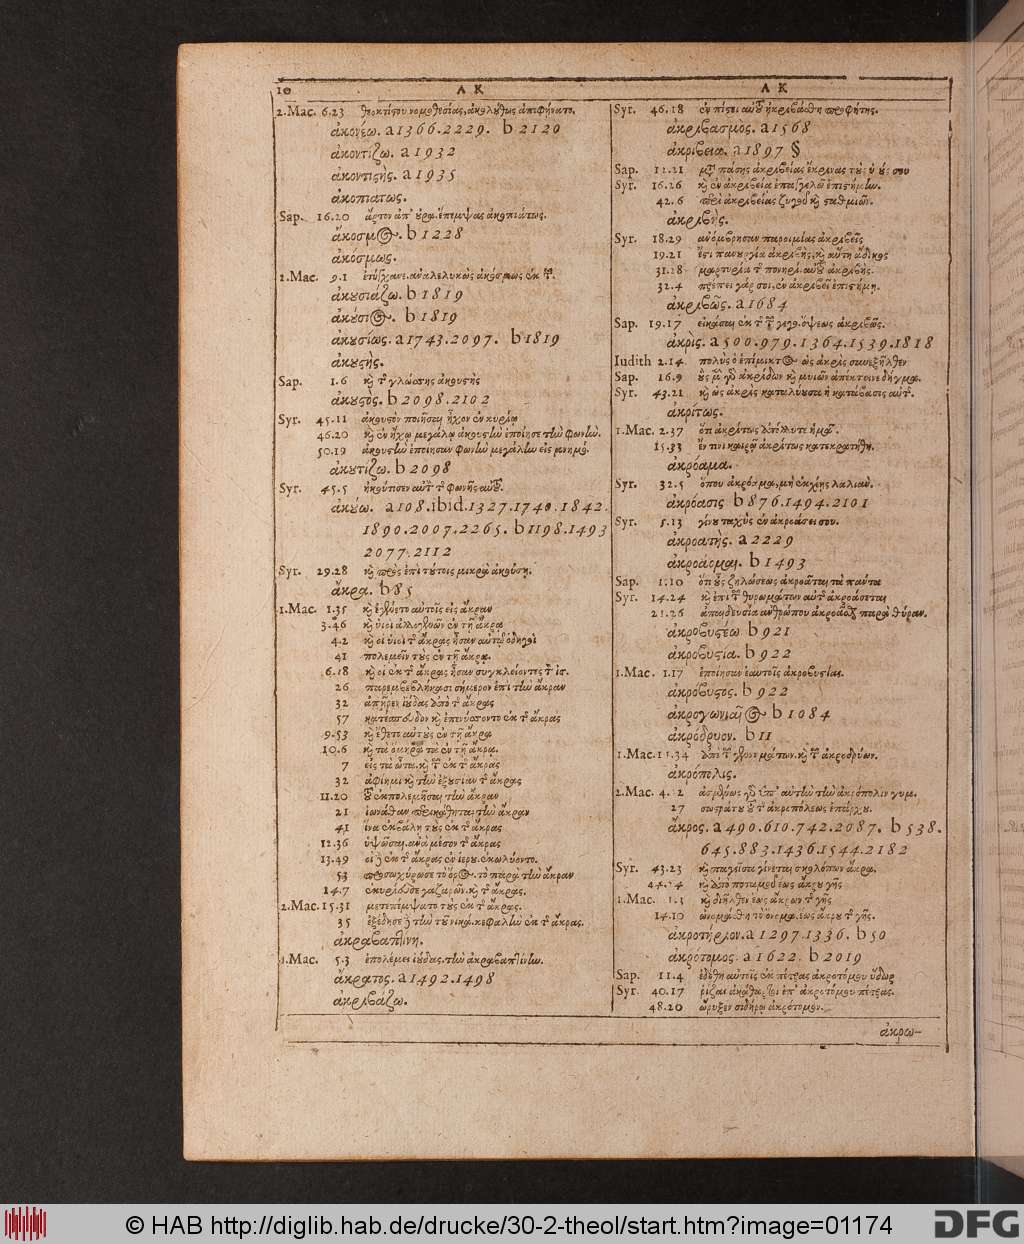 10 ΑΚ ΑΚ
2.Mac. 6.23 θεοκτίστου νομοθεσίας, ἀκολούθως ἀπεφήνατο.
ἀκονέω. a 1366.2229. b 2120
ἀκοντίζω. a 1932
ἀκοντιστής. a 1935
ἀκοπιάτως.
Sap. 16.20 ἄρτον ἀπ' οὐρα. ἔπεμψας ἀκοπιάτως.
ἄκοσμος. b 1228
ἀκόσμως.
2.Mac. 9.1 ἐτύγχανε. ἀναλελυκὼς ἀκόσμως ἐκ τ.
ἀκουσιάζω. b 1819
ἀκούσιος. b 1819
ἀκουσίως. a 1743.2097. b 1819
ἀκουστής.
Sap. 1.6 καὶ τ γλώσσης ἀκουστὴς
ἀκουστός. b 2098.2102
Syr. 45.11 ἀκουστὸν ποιῆσαι ἦχον ἐν κυρίῳ
46.20 καὶ ἐν ἤχῳ μεγάλῳ ἀκουστὴν ἐποίησε τὴν φωνὴν.
50.19 ἀκουστὴν ἐποίησαν φωνὴν μεγάλην εἰς μνημό.
ἀκουτίζω. b 2098
Syr. 45.5 ἠκούτισεν αὐτὸ τ φωνῆς αὐτοῦ.
ἀκούω. a 108.ibid.1327.1740.1842.
1890.2007.2265. b 1198.1493
2077.2112
Syr. 29.28 καὶ πρὸς ἐπὶ τούτοις μικρὰ ἀκούσῃ.
ἄκρα. b 85
1.Mac. 1.35 καὶ ἐγένετο αὐτοῖς εἰς ἄκραν
3.46 καὶ υἱοὶ ἀλλογενῶν ἐν τῇ ἄκρᾳ
4.2 καὶ οἱ υἱοὶ τ ἄκρας ἦσαν αὐτῷ ὁδηγοὶ
41 πολεμεῖν τοὺς ἐν τῇ ἄκρᾳ.
6.18 καὶ οἱ ἐκ τ ἄκρας ἦσαν συγκλείοντες τ ἰσ.
26 παρεμβεβλήκασι σήμερον ἐπὶ τὴν ἄκραν
32 ἀπῆρεν ἰούδας ἀπὸ τ ἄκρας
57 κατέσπευδον καὶ ἐπένευοντο ἐκ τ ἄκρας
9.53 καὶ ἔθετο αὐτοὺς ἐν τῇ ἄκρᾳ
10.6 καὶ τὰ ὅμηρα τὰ ἐν τῇ ἄκρᾳ.
7 εἰς τὰ ὦτα. καὶ τ ἐκ τ ἄκρας
32 ἀφίημι καὶ τὴν ἐξουσίαν τ ἄκρας
11.20 τοῦ ἐκπολεμῆσαι τὴν ἄκραν
21 ἰωνάθαν περικάθηται τὴν ἄκραν
41 ἵνα ἐκβάλῃ τοὺς ἐκ τ ἄκρας
12.36 ὑψῶσαι. ἀνὰ μέσον τ ἄκρας
13.49 οἱ δὲ ἐκ τ ἄκρας ἐν ἱερου. ἐκωλύοντο.
53 προσωχύρωσε τὸ ὄρος. τὸ παρὰ τὴν ἄκραν
14.7 ἐκυρίευσε γαζαρῶν. καὶ τ ἄκρας.
2.Mac. 15.31 μετεπέμψατο τοὺς ἐκ τ ἄκρας.
35 ἐξέδησε δὲ τὴν τ νικά. κεφαλὴν ἐκ τ ἄκρας.
ἀκραβαττίνη.
1.Mac. 5.3 ἐπολέμει ἰούδας. τὴν ἀκραβαττίνην.
ἄκρατος. a 1492.1498
ἀκριβάζω.
Syr. 46.18 ἐν πίστει αὐτοῦ ἠκριβάσθη προφήτης.
ἀκριβασμὸς. a 1568
ἀκρίβεια. a 1897 §
Sap. 12.21 μετὰ πάσης ἀκριβείας ἔκρινας τοὺς υἱούς σου
Syr. 16.26 καὶ ἐν ἀκριβείᾳ ἐπαγγελῶ ἐπιστήμην.
42.6 περὶ ἀκριβείας ζυγοῦ καὶ σταθμιῶν.
ἀκριβὴς.
Syr. 18.29 ἀνόμβρησαν παροιμίας ἀκριβεῖς
19.21 ἔστι πανουργία ἀκριβὴς, καὶ αὕτη ἄδικος
31.28 μαρτυρία τ πονηρί. αὐτοῦ ἀκριβής.
32.4 πρέπει γάρ σοι, ἐν ἀκριβεῖ ἐπιστήμῃ.
ἀκριβῶς. a 1684
Sap. 19.17 εἰκάσαι ἐκ τ τ γεγο. ὄψεως ἀκριβῶς.
ἀκρὶς. a 500.979.1364.1539.1818
Iudith 2.14 πολὺς ὁ ἐπίμικτος ὡς ἀκρὶς συνεξῆλθεν
Sap. 16.9 οὓς μ γὰρ ἀκρίδων καὶ μυιῶν ἀπέκτεινε δήγμα.
Syr. 43.21 καὶ ὡς ἀκρὶς καταλύουσα ἡ κατάβασις αὐτ.
ἀκρίτως.
1.Mac. 2.37 ὅτι ἀκρίτως ἀπόλλυτε ἡμᾶς.
15.33 ἔν τινι καιρῷ ἀκρίτως κατεκρατήθη.
ἀκρόαμα.
Syr. 32.5 ὅπου ἀκρόαμα, μὴ ἐκχέῃς λαλιάν.
ἀκρόασις b 876.1494.2101
Syr. 5.13 γίνου ταχὺς ἐν ἀκροάσει σου.
ἀκροατὴς. a 2229
ἀκροάομαι. b 1493
Sap. 1.10 ὅτι οὖς ζηλώσεως ἀκροᾶται τὰ πάντα
Syr. 14.24 καὶ ἐπὶ τ θυρωμάτων αὐτ ἀκροάσεται
21.26 ἀπαιδευσία ἀνθρώπου ἀκροᾶσθαι παρὰ θύραν.
ἀκροβυστέω b 921
ἀκροβυστία. b 922
1.Mac. 1.17 ἐποίησαν ἑαυτοῖς ἀκροβυστίας.
ἀκρόβυστος. b 922
ἀκρογωνιαῖος b 1084
ἀκρόδρυον. b 11
1.Mac. 11.34 ἀπὸ τ γεννημάτων. καὶ τ ἀκροδρύων.
ἀκρόπολις.
2.Mac. 4. 2 ὑπ' αὐτὴν τὴν ἀκρόπολιν γυμ.
27 σωστράτου τοῦ τ ἀκροπόλεως ἐπάρχου.
ἄκρος. a 490.610.742.2087. b 538.
645.883.1436.1544.2182
Syr. 43.23 καὶ παγεῖσα γίνεται σκολόπων ἄκρα.
44.24 καὶ ἀπὸ ποταμοῦ ἕως ἄκρου γῆς
1.Mac. 1.3 καὶ διῆλθεν ἕως ἄκρων τ γῆς
14.10 ὠνομάσθη τὸ ὄνομα. ἕως ἄκρου τ γῆς.
ἀκροτήριον. a 1297.1336. b 50
ἀκρότομος. a 1622. b 2019
Sap. 11.4 ἐδόθη αὐτοῖς ἐκ πέτρας ἀκροτόμου ὕδωρ
Syr. 40.17 ῥίζαι ἀκάθαρτοι ἐπ' ἀκροτόμου πέτρας.
48.20 ὤρυξεν σιδήρῳ ἀκρότομον.
ἀκρω-
© HAB http://diglib.hab.de/drucke/30-2-theol/start.htm?image=01174
DFG